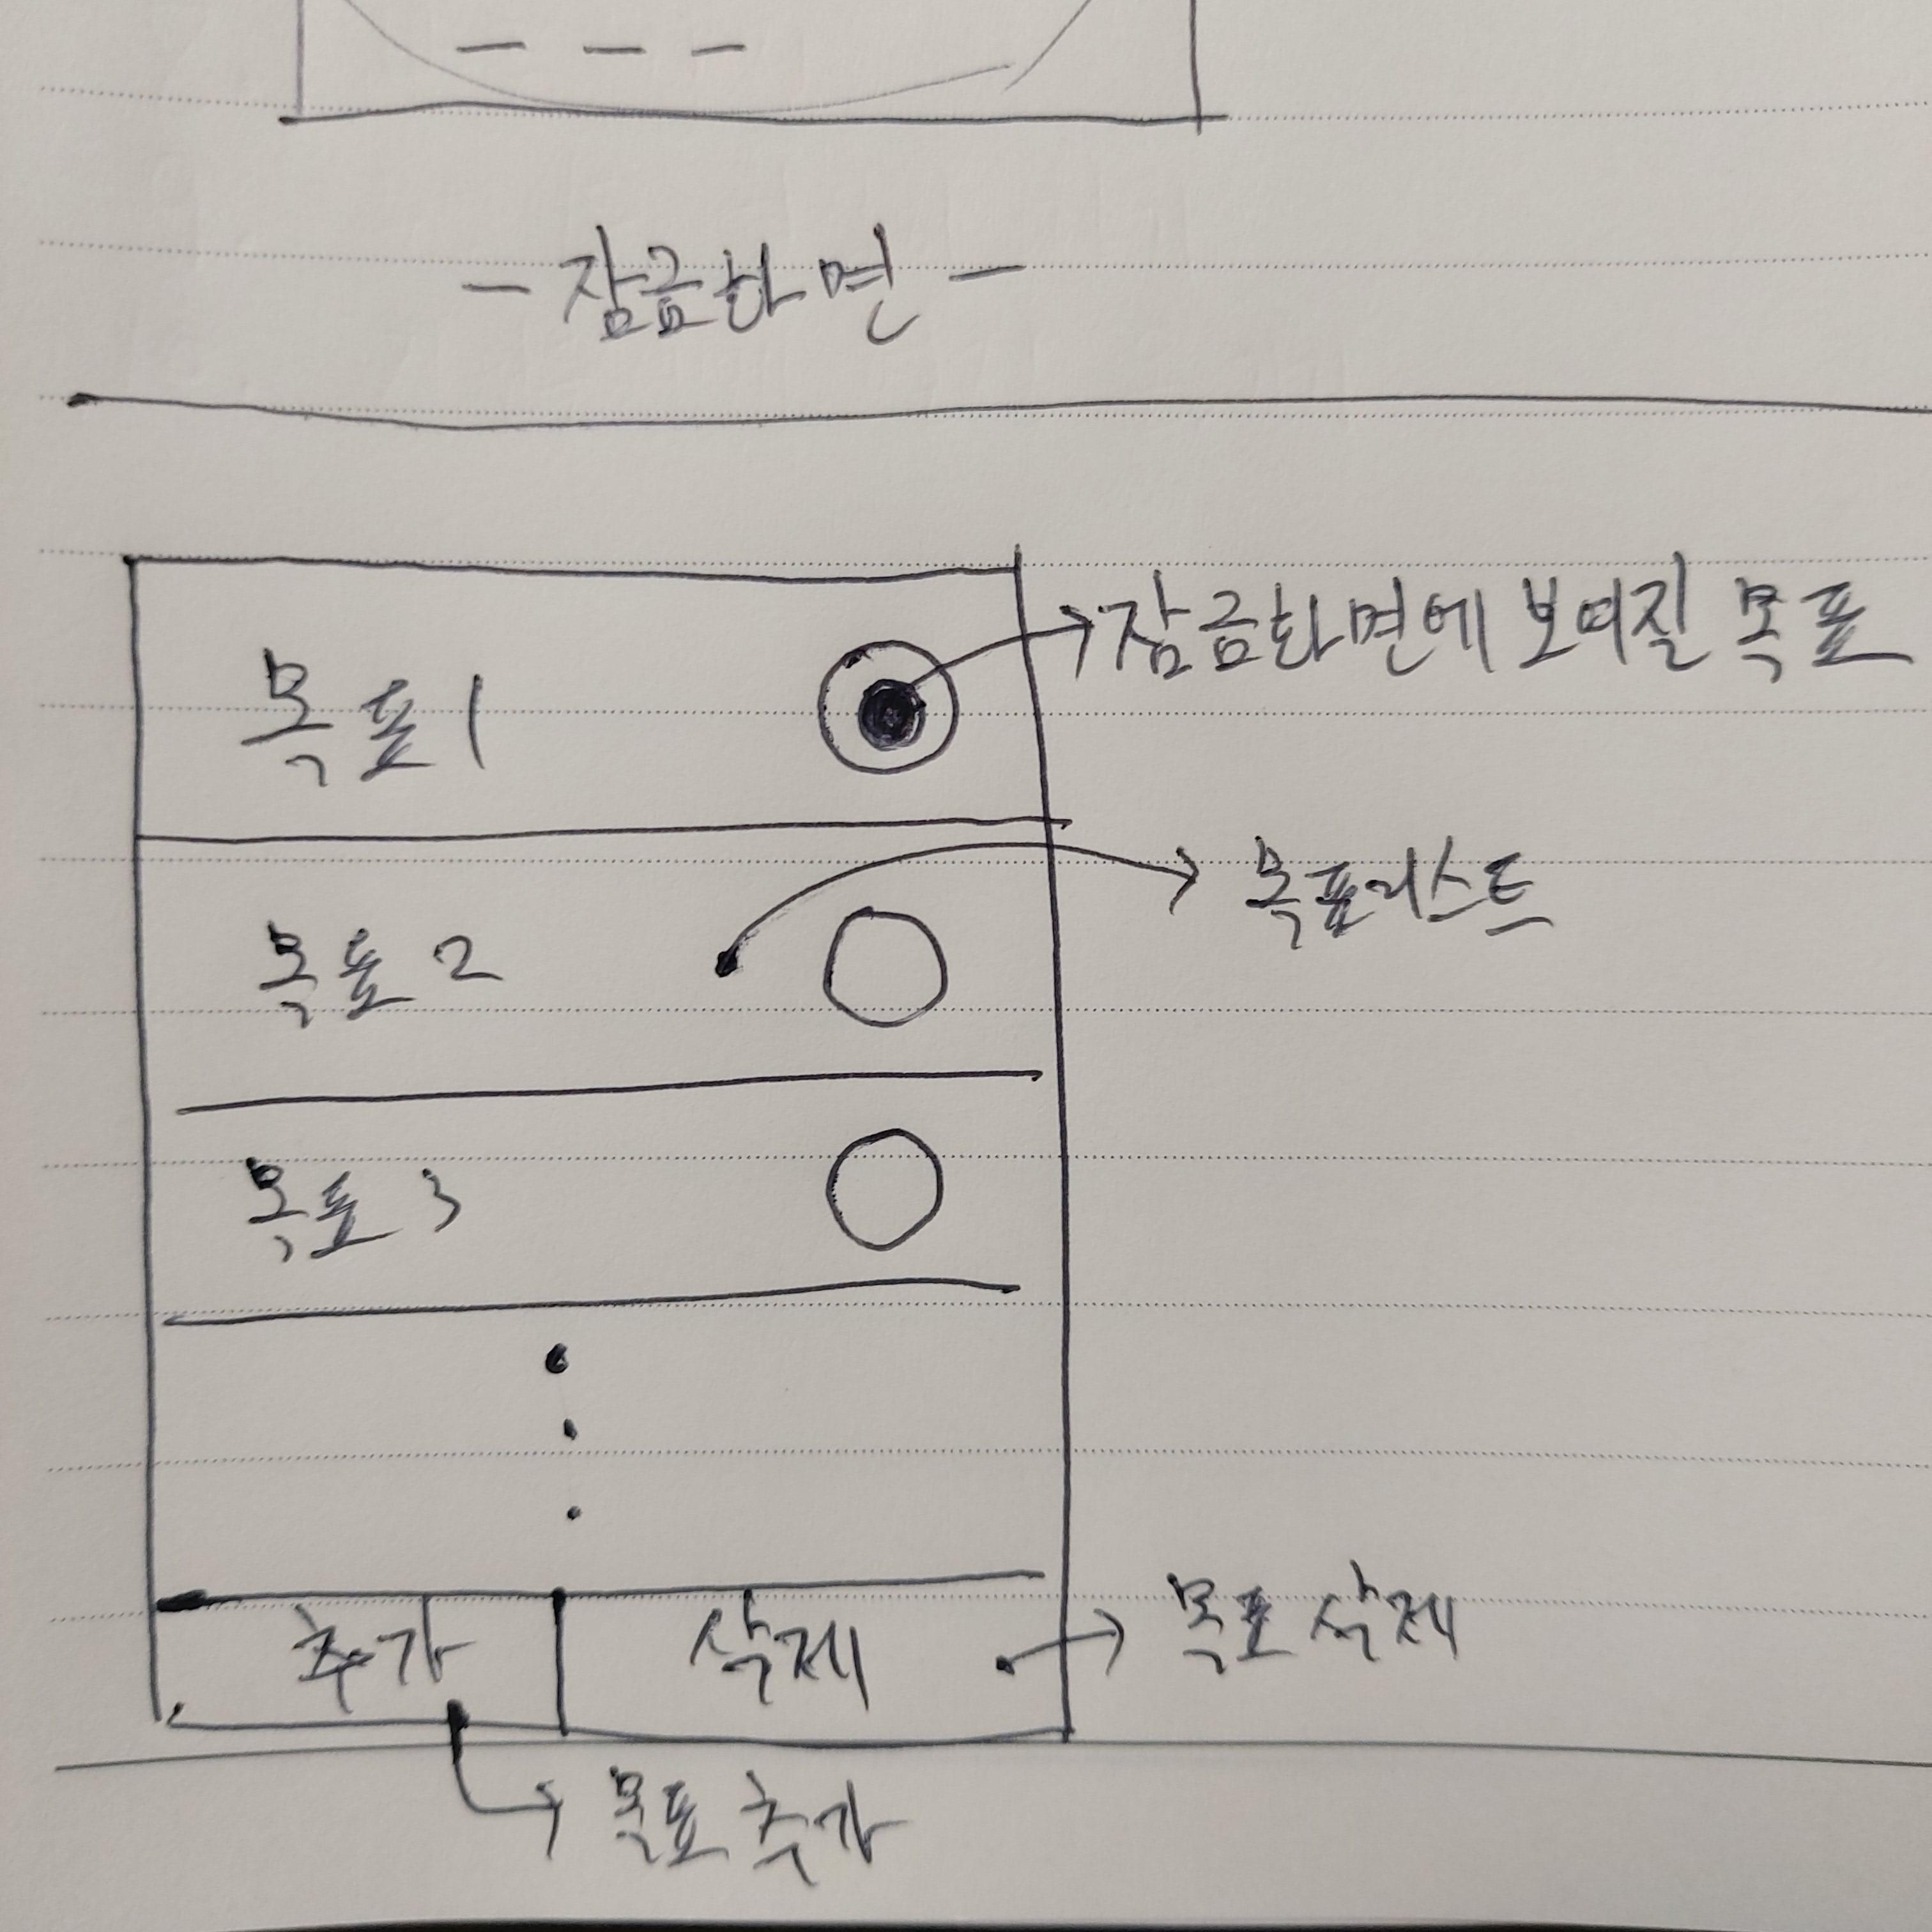 - 잠금화면 -
목표1
잠금화면에 보여질 목표
목표리스트
목표 2
목표 3
추가
삭제
목표 삭제
목표 추가